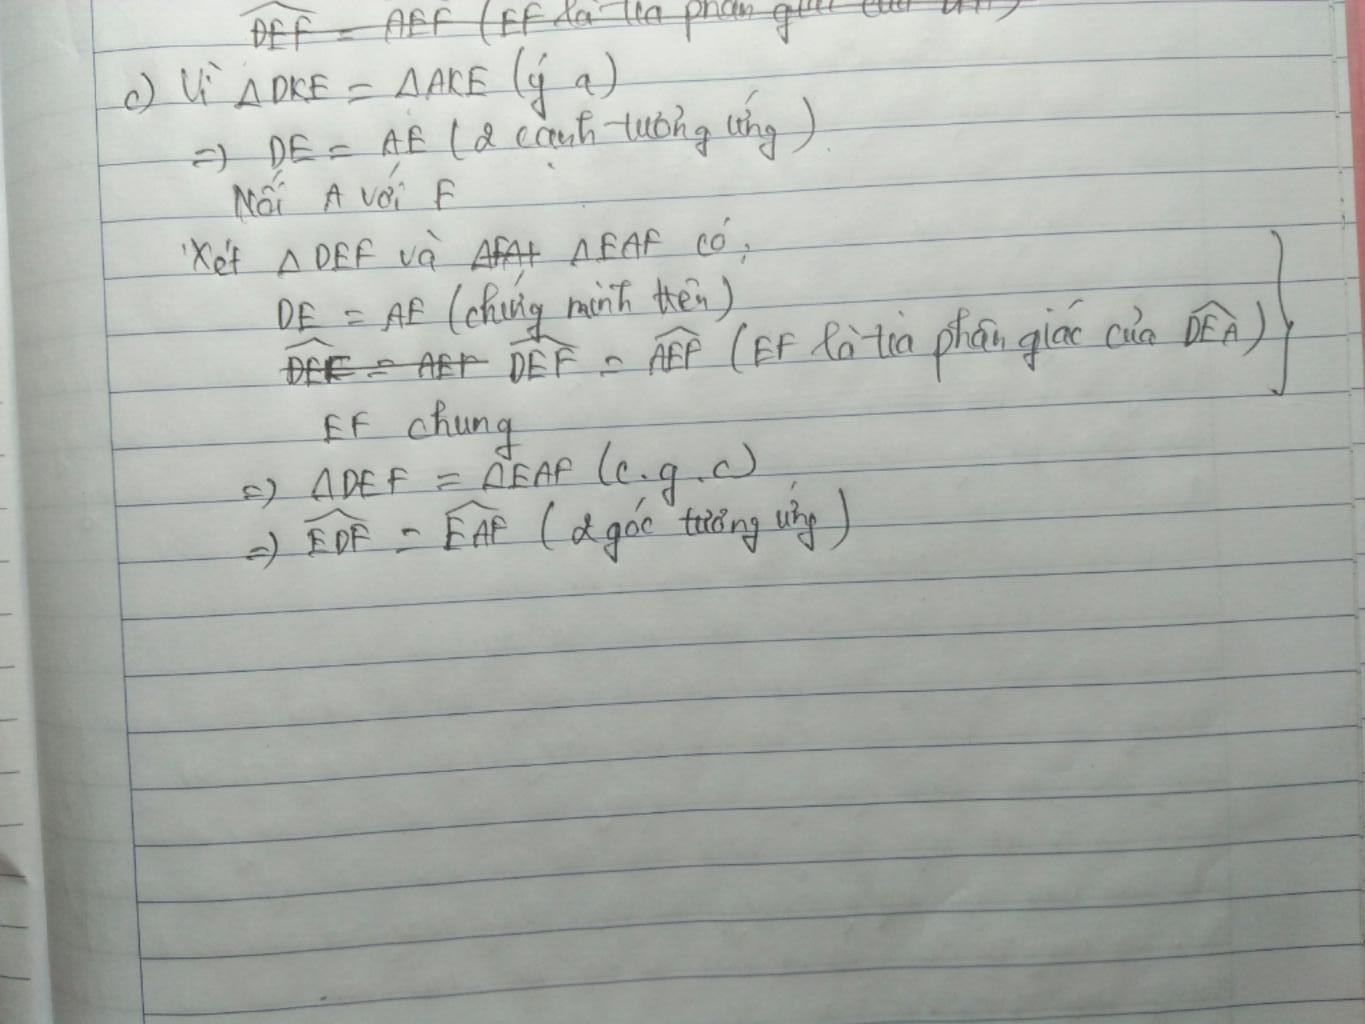 DEF = AEF (EF là tia phân giác của
c) Vì ΔDKE = ΔAKE (ý a)
=> DE = AE (2 cạnh tương ứng)
Nối A với F
Xét ΔDEF và ΔEAF có:
DE = AE (chứng minh trên)
DEF = AEF DEF = AEF (EF là tia phân giác của DEA)
EF chung
=> ΔDEF = ΔEAF (c.g.c)
=> EDF = EAF (2 góc tương ứng)